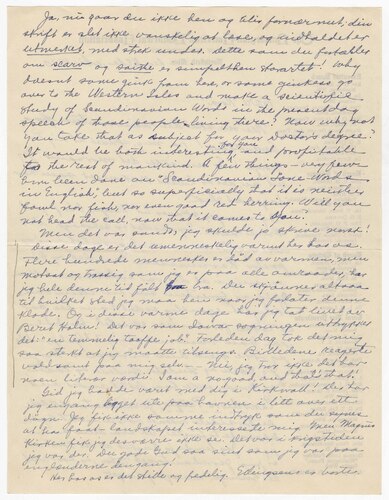 Ja, nu gaar du ikke hen og blir fornærmet, din
skrift er slet ikke vanskelig at læse, og indholdet er
utmerket, med stick under. Dette som du fortalles
om scarv og saithe er simpelthen storartet! Why
doesnt some geink from here, or some genkess go
over to the Western Isles and make a scientific
study of Scandinavian Words in the present day
speech of those people living there? Now why not
you take that as subject for your Doctors degree?
It would be both interesting for you and profitable
to the rest of mankind. A few things - very few
have been done on "Scandinavian Tone Words
in English," but so superficially that it is neither
fowl nor fish, nor even good red herring. Will you
not head the call, now that it comes to You?
Men det var sandt, jeg skulde jo skrive norsk!
Disse dage er det umenneskelig varmt her hos os.
Flere hundrede mennesker er død av varmen, men
motsat og trassig som jeg er paa alle omraader, har
jeg hele denne tid følt bra. Du skjønner altsaa
til hvilket sted jeg maa hen naar jeg forlater denne
klode. Og i disse varme dage har jeg tat livet av
Berit Halun! Det var som davar sogningen uttrykker
det: "en temmelig taaffe job." Forleden dag tok det mig
saa sterkt at jeg maatte tilsengs. Billedene reagerte
voldsomt paa mig selv - Nei, jeg tror ikke det har
noen litterær verdi. I am a nogood, and that's that!
Gid jeg hadde været med dig i Kirkwall! Der har
jeg engang ligget ute paa havnen i litt over ett
døgn. Jeg fik ikke samme indtryk som du synes
at ha faat - landskapet interesserte mig. Men Magnus
Kirken fik jeg desværre ikke se. Det var i krigstiden
jeg var der. De gode Gud saa sint som jeg var paa
englænderne dengang.
Her hos os er det stille og fredelig. Edingsens er borte